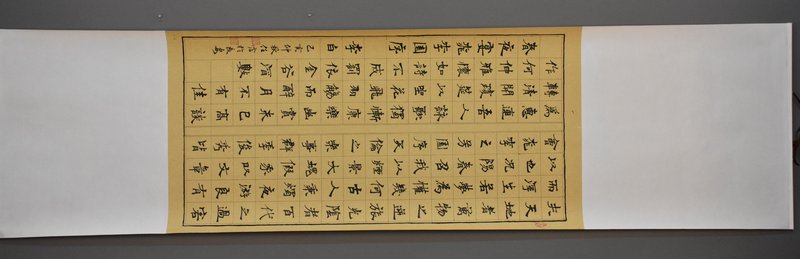 夫天地者萬物之逆旅光陰者百代之過客
而浮生若夢為歡幾何古人秉燭夜遊良有
以也況陽春召我以煙景大塊假我以文章
會桃李之芳園序天倫之樂事群季俊秀皆
為惠連吾人詠歌獨慚康樂幽賞未已高談
轉清開瓊筵以坐花飛羽觴而醉月不有佳
作何伸雅懷如詩不成罰依金谷酒數
春夜宴桃李園序 李白 己亥仲秋